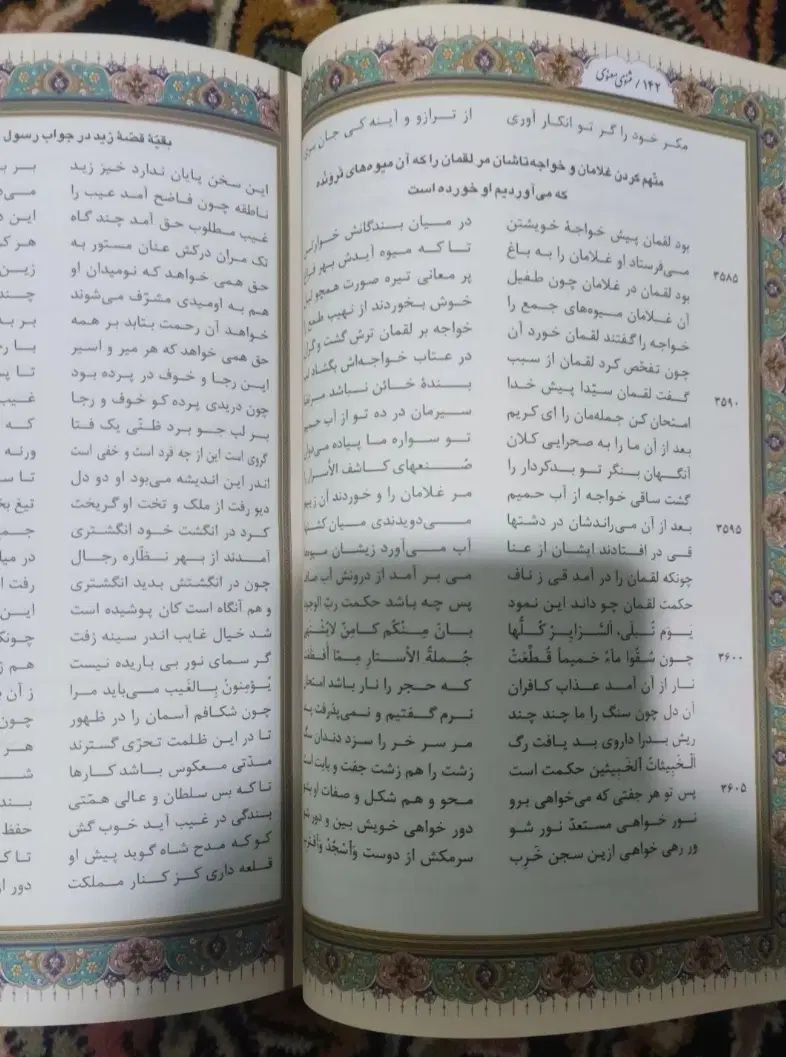 ۱۴۲/ مثنوی معنوی
مکر خود را گر تو انکار آوری از ترازو و آینه کی جان بری
متّهم کردن غلامان و خواجه‌تاشان مر لقمان را که آن میوه‌های تَرونده
که می‌آوردیم او خورده است
بود لقمان پیش خواجهٔ خویشتن در میان بندگانش خوارتن
۳۵۸۵ می‌فرستاد او غلامان را به باغ تا که میوه آیدش بهر فراغ
بود لقمان در غلامان چون طفیل پر معانی تیره صورت همچو لیل
آن غلامان میوه‌های جمع را خوش بخوردند از نهیب طمع را
خواجه را گفتند لقمان خورد آن خواجه بر لقمان ترش گشت و گران
چون تفحّص کرد لقمان از سبب در عتاب خواجه‌اش بگشاد لب
۳۵۹۰ گفت لقمان سیّدا پیش خدا بندهٔ خائن نباشد مرتضا
امتحان کن جمله‌مان را ای کریم سیرمان در ده تو از آب حمیم
بعد از آن ما را به صحرایی کلان تو سواره ما پیاده می‌دوان
آنگهان بنگر تو بدکردار را صُنعهای کاشف الأسرار را
گشت ساقی خواجه از آب حمیم مر غلامان را و خوردند آن ز بیم
۳۵۹۵ بعد از آن می‌راندشان در دشتها می‌دویدندی میان کشتها
قی در افتادند ایشان از عنا آب می‌آورد زیشان میوه‌ها
چونکه لقمان را در آمد قی ز ناف می بر آمد از درونش آب صاف
حکمت لقمان چو داند این نمود پس چه باشد حکمت ربّ الوجود
یَوْمَ تُبْلَی، السَّرَایِرُ کُلُّها بانَ مِنْکُم کامِنٌ لایُشْتَهی
۳۶۰۰ چون سُقُوا ماءً حَمیماً قُطِّعَتْ جُملةُ الأستارِ مِمّا اُفْظِعَتْ
نار از آن آمد عذاب کافران که حجر را نار باشد امتحان
آن دل چون سنگ را ما چند چند نرم گفتیم و نمی‌پذرفت پند
ریش بد را داروی بد یافت رگ مر سر خر را سزد دندان سگ
الْخَبیثاتُ اَلخَبیثین حکمت است زشت را هم زشت جفت و بابت است
۳۶۰۵ پس تو هر جفتی که می‌خواهی برو محو و هم شکل و صفات او بشو
نور خواهی مستعدّ نور شو دور خواهی خویش بین و دور شو
ور رهی خواهی ازین سجن خَرِب سرمکش از دوست وَاسْجُدْ وَاقْتَرِب
بقیّهٔ قصّهٔ زید در جواب رسول
این سخن پایان ندارد خیز زید بر
ناطقه چون فاضح آمد عیب را
غیب مطلوب حق آمد چند گاه این
تک مران درکش عنان مستور به هر
حق همی خواهد که نومیدان او زین
هم به اومیدی مشرّف می‌شوند چند
خواهد آن رحمت بتابد بر همه بر
حق همی خواهد که هر میر و اسیر با
این رجا و خوف در پرده بود تا
چون دریدی پرده کو خوف و رجا غیب
بر لب جو برد ظنّی یک فتا که
گروی است این از چه فرد است و خفی است ورنه
اندر این اندیشه می‌بود او دو دل تا
دیو رفت از ملک و تخت او گریخت تیغ
کرد در انگشت خود انگشتری
آمدند از بهر نظّاره رجال در
چون در انگشتش بدید انگشتری رفت
و هم آنگاه است کان پوشیده است این
شد خیال غایب اندر سینه زفت
گر سمای نور بی باریده نیست هم
یُؤمِنونُ بِالغَیب می‌باید مرا ز آن
چون شکافم آسمان را در ظهور چون
تا در این ظلمت تحرّی گسترند هر
مدّتی معکوس باشد کارها
تا که بس سلطان و عالی همّتی
بندگی در غیب آید خوب گش حفظ
کو که مدح شاه گوید پیش او تا
قلعه داری کز کنار مملکت دور